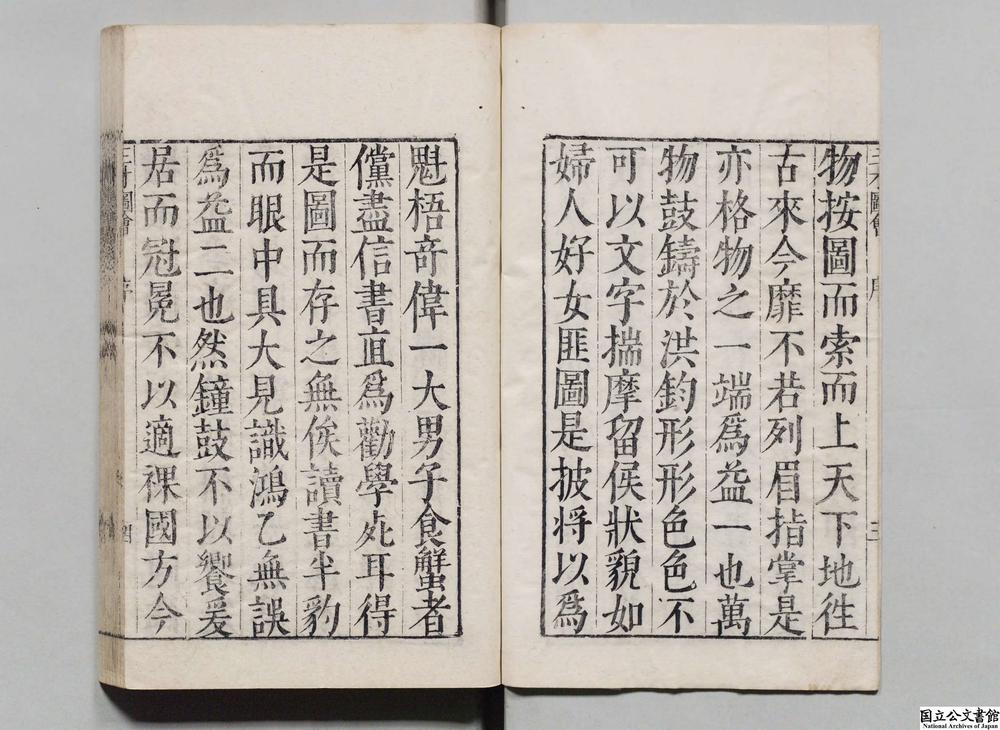 物按圖而索而上天下地徃
古來今靡不若列眉指掌是
亦格物之一端爲益一也萬
物鼓鑄於洪鈞形形色色不
可以文字揣摩留侯狀貌如
婦人好女匪圖是披将以爲
魁梧竒偉一大男子食蟹者
儻盡信書直爲勸學死耳得
是圖而存之無俟讀書半豹
而眼中具大見識鴻乙無誤
爲益二也然鐘鼓不以饗爰
居而冠冕不以適裸國方今
三才圖會
序
三
三才圖會
序
四
国立公文書館
National Archives of Japan